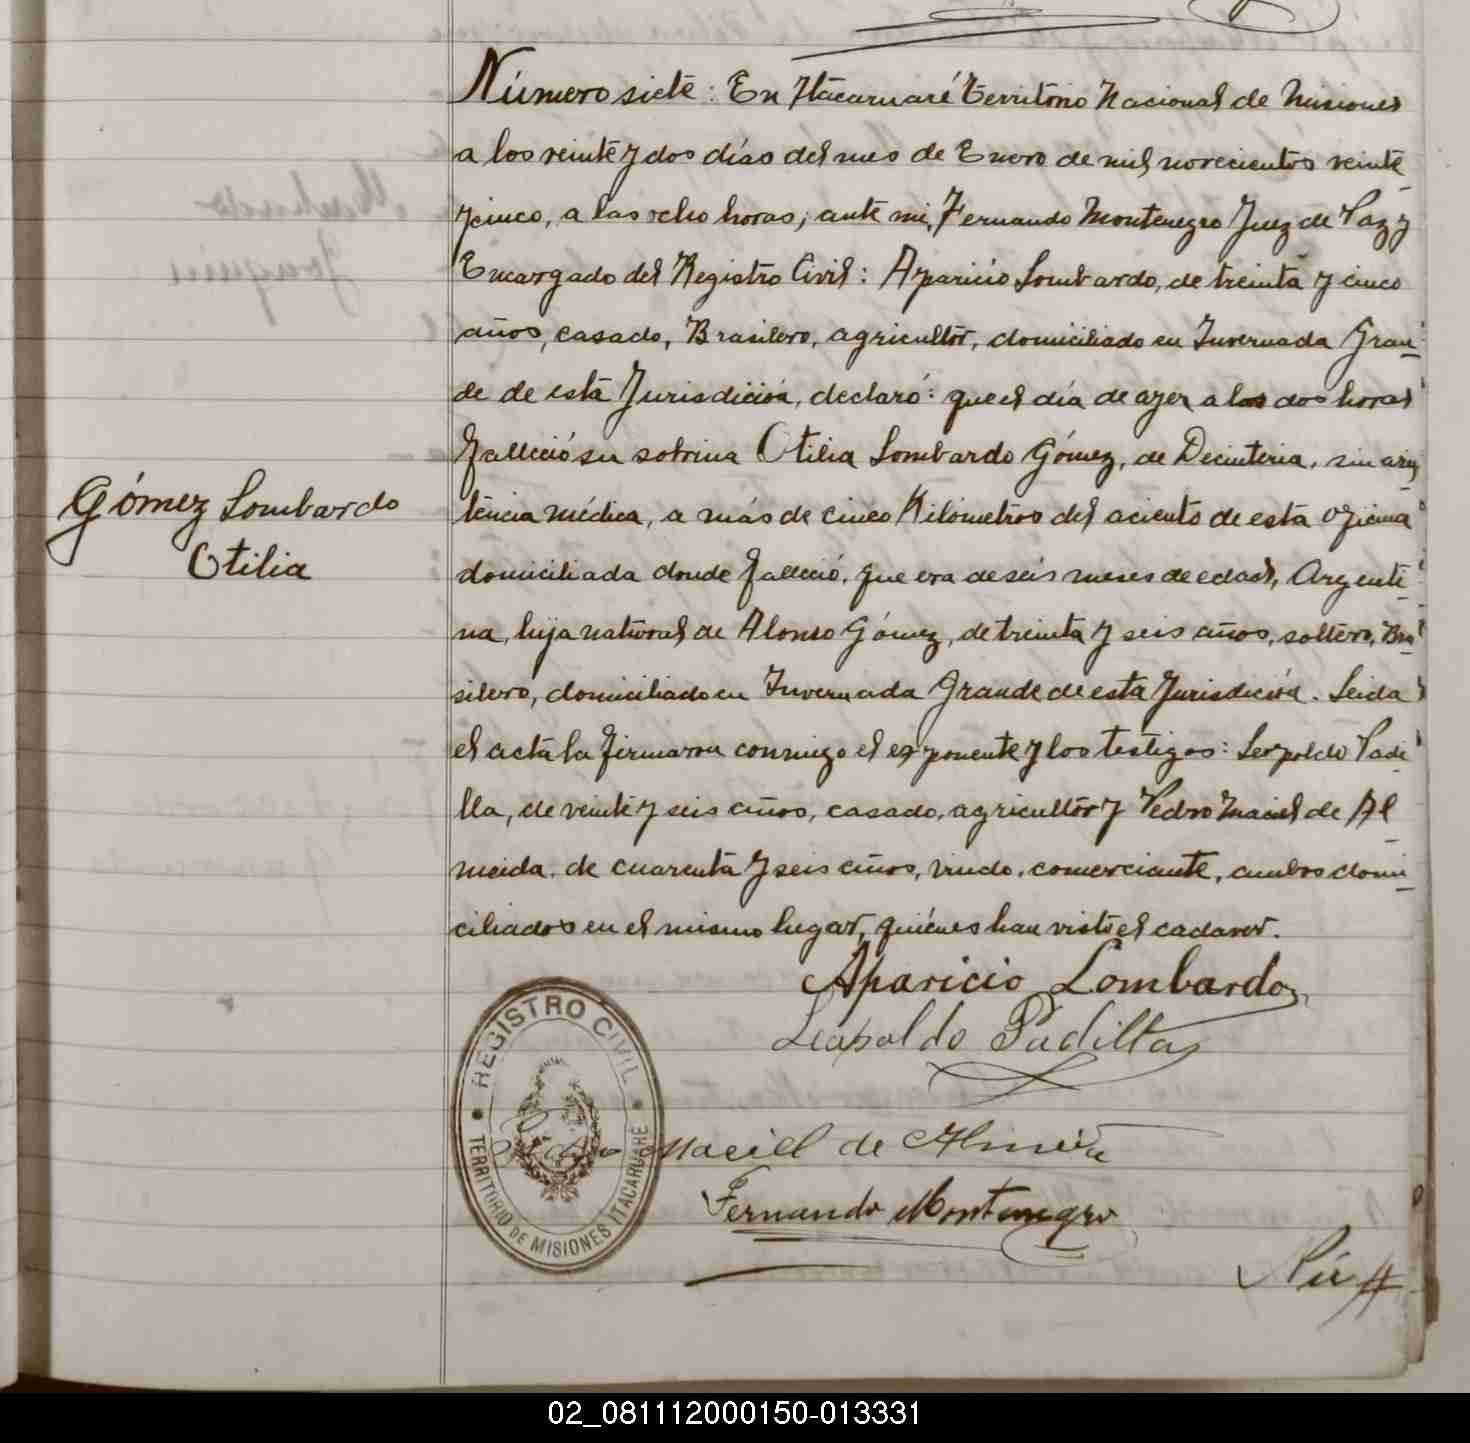 Número siete: En Itacaruaré Territorio Nacional de Misiones
a los veinte y dos días del mes de Enero de mil novecientos veinte
y cinco, a las ocho horas, ante mi, Fernando Montenegro Juez de Paz y
Encargado del Registro Civil: Aparicio Lombardo, de treinta y cinco
años, casado, Brasilero, agricultor, domiciliado en Invernada Gran-
de de esta Jurisdición, declaró: que el día de ayer a las dos horas
falleció su sobrina Otilia Lombardo Gómez, de Decinteria, sin asis-
tencia médica, a más de cinco Kilómetros del aciento de esta oficina
domiciliada donde falleció, que era de seis meses de edad, Argenti-
na, hija natural de Alonso Gómez, de treinta y seis años, soltero, Bra-
silero, domiciliado en Invernada Grande de esta Jurisdición. Leida
el acta la firmaron conmigo el exponente y los testigos: Leopoldo Padi-
lla, de veinte y seis años, casado, agricultor y Pedro Maciel de Al-
meida, de cuarenta y seis años, viudo, comerciante, ambos domi-
ciliados en el mismo lugar, quiénes han visto el cadaver.
Gómez Lombardo
Otilia
Aparicio Lombardo
Leopoldo Padilla
Maciell de Almeida
Fernando Montenegro
REGISTRO CIVIL
TERRITORIO DE MISIONES ITACARUARÉ
02_081112000150-013331